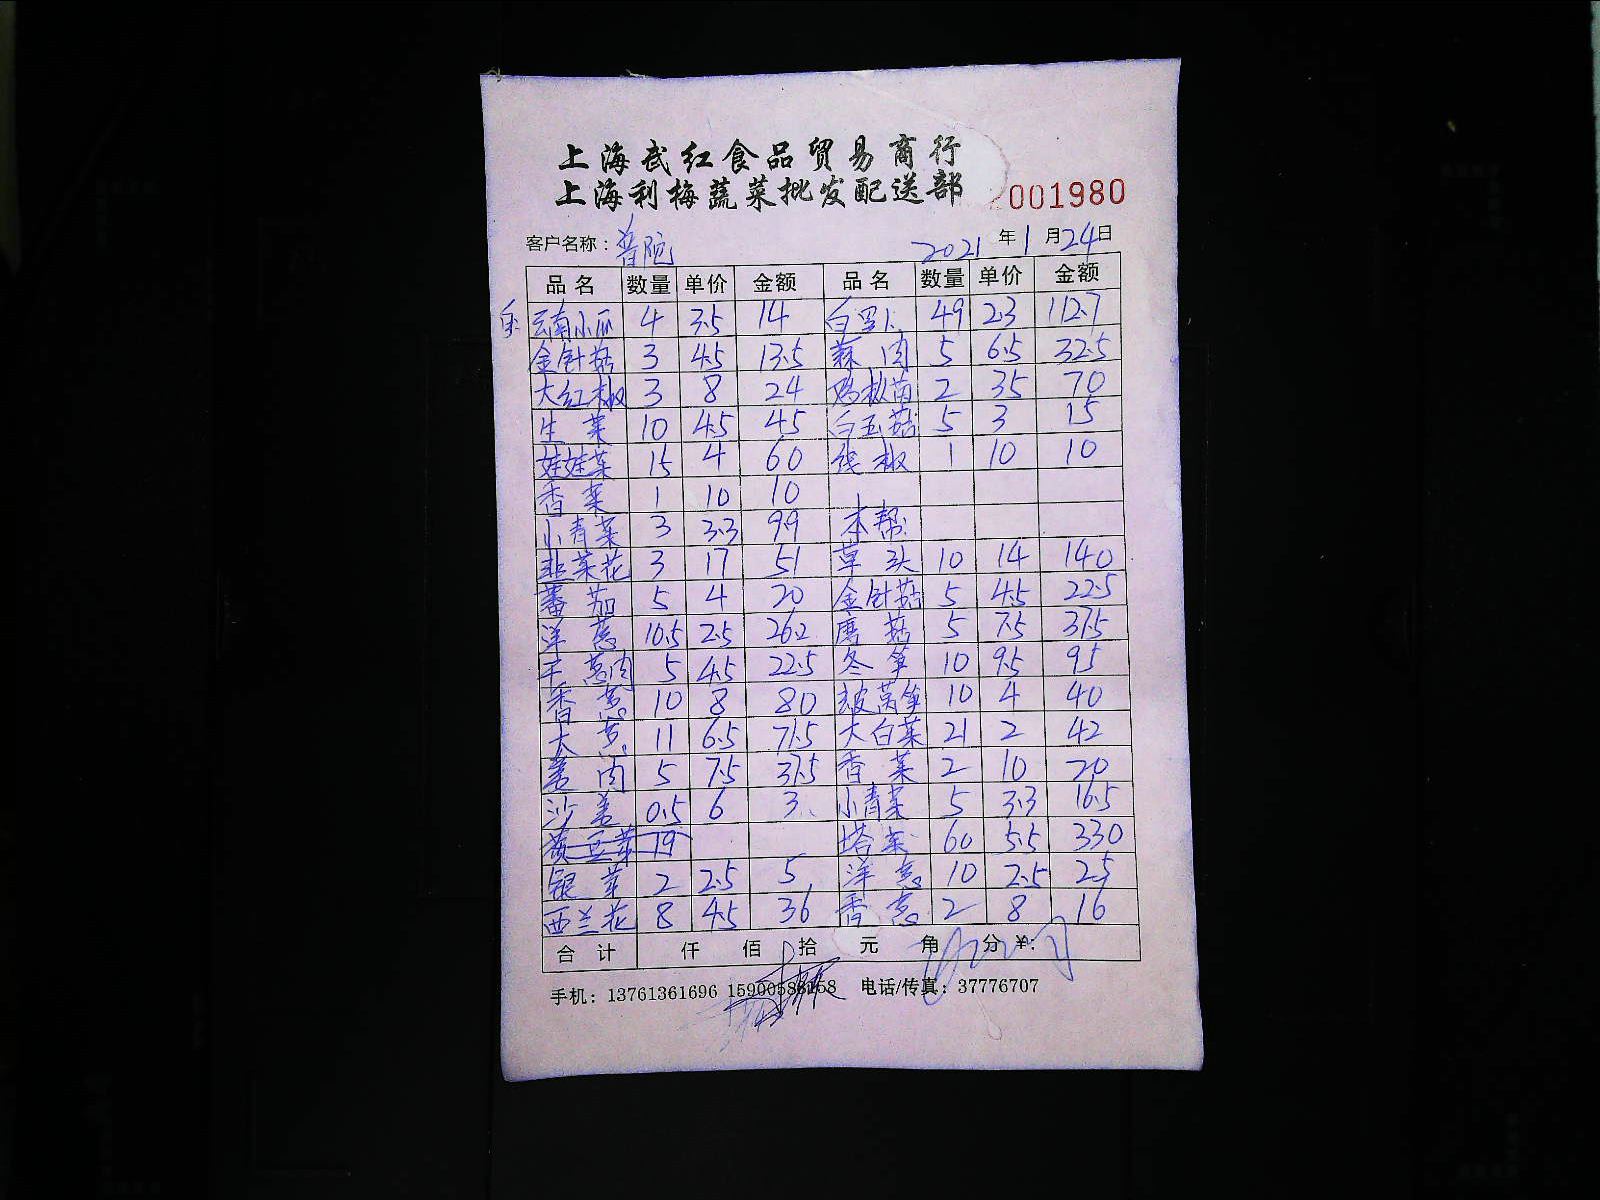 上海武红食品贸易商行
上海利梅蔬菜批发配送部 2001980
客户名称：普陀 2021年1月24日
品名 数量 单价 金额 品名 数量 单价 金额
云南小瓜 4 3.5 14 白罗卜 49 2.3 112.7
金针菇 3 4.5 13.5 蒜肉 5 6.5 32.5
大红椒 3 8 24 鸡枞菌 2 35 70
生菜 10 4.5 45 白玉菇 5 3 15
娃娃菜 15 4 60 线椒 1 10 10
香菜 1 10 10
小青菜 3 3.3 9.9 本帮:
韭菜花 3 17 51 草头 10 14 140
蕃茄 5 4 20 金针菇 5 4.5 22.5
洋葱 10.5 2.5 26.2 磨菇 5 7.5 37.5
干葱肉 5 4.5 22.5 冬笋 10 9.5 95
香葱 10 8 80 莴笋 10 4 40
大葱 11 6.5 71.5 大白菜 21 2 42
姜肉 5 7.5 37.5 香菜 2 10 20
沙姜 0.5 6 3 小青菜 5 3.3 16.5
黄豆芽 19 塔菜 60 5.5 330
银芽 2 2.5 5 洋葱 10 2.5 25
西兰花 8 4.5 36 香葱 2 8 16
合计 仟 佰 拾 元 角 分 ¥:
手机：13761361696 15900586158 电话/传真：37776707